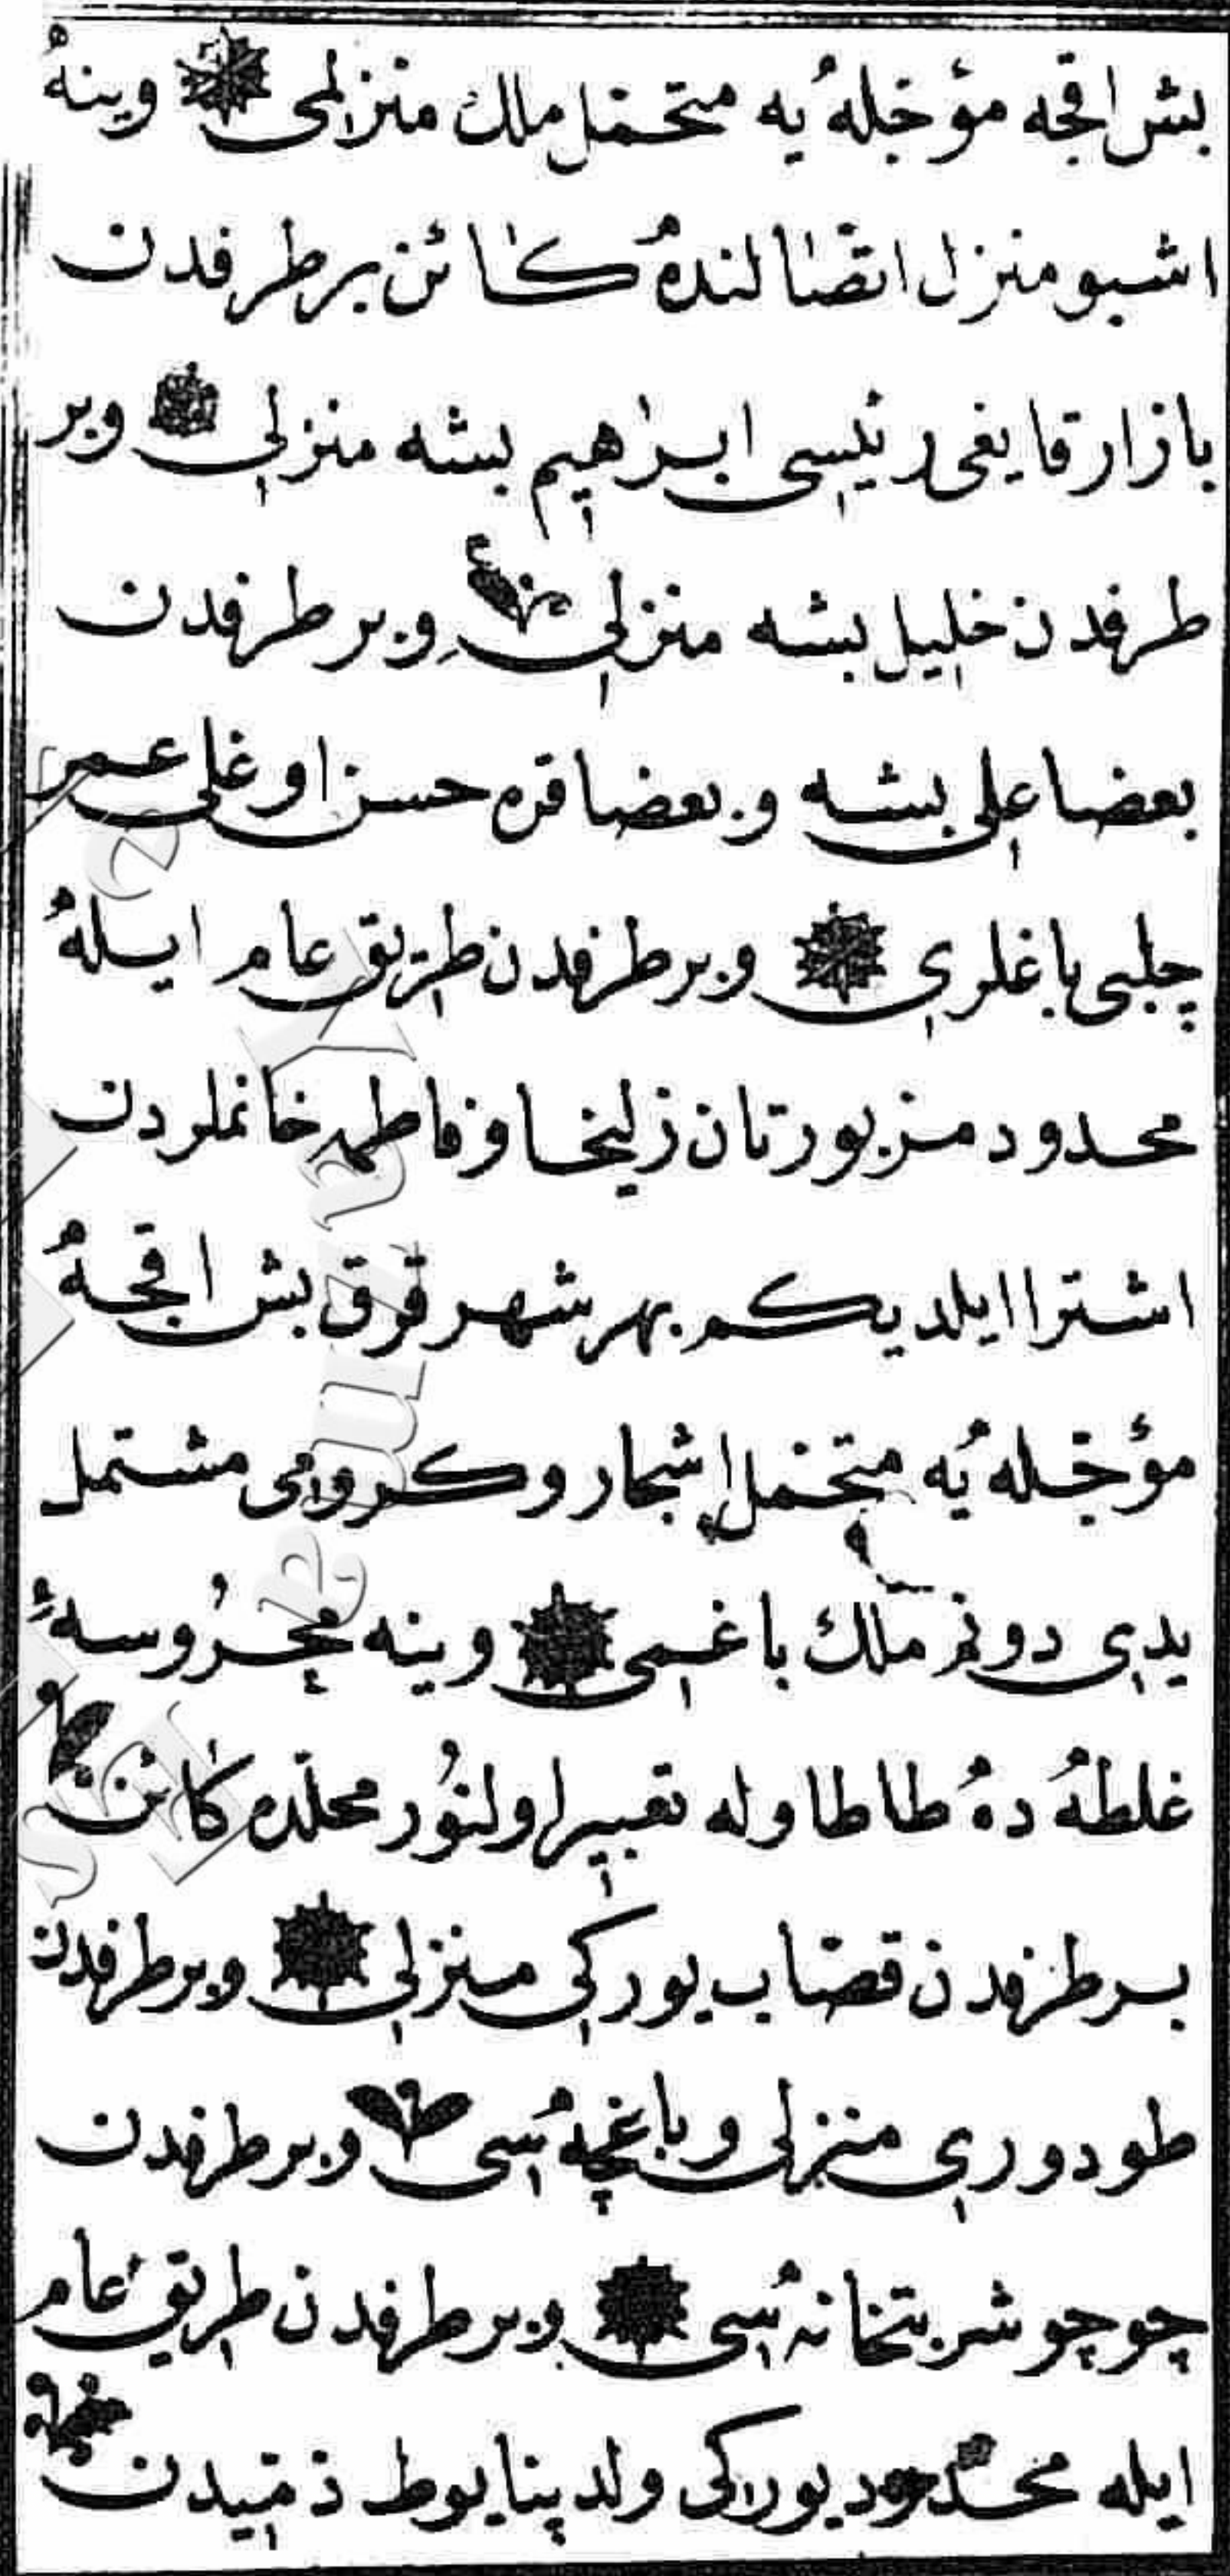 بش اقچه مؤجله يه متحمل ملك منزلمى وينه
اشبو منزل اتصالنده كائن بر طرفدن
بازار قايغى رئيسى ابراهيم بشه منزلى وبر
طرفدن خليل بشه منزلى وبر طرفدن
بعضا على بشه وبعضا قره حسن اوغلى عمر
چلبى باغلرى وبر طرفدن طريق عام ايله
محدود مزبورتان زليخا و فاطمه خانملردن
اشترا ايلديكم بهر شهر قرق بش اقچه
مؤجله يه متحمل اشجار وكرومى مشتمل
يدى دونم ملك باغمى وينه محروسه
غلطه ده طاطاوله تعبير اولنور محلده كائن
بر طرفدن قصاب يوركى منزلى وبر طرفدن
طودورى منزلى وباغچه سى وبر طرفدن
چوچو شربتخانه سى وبر طرفدن طريق عام
ايله محدود يوركى ولد پنايوط ذميدن